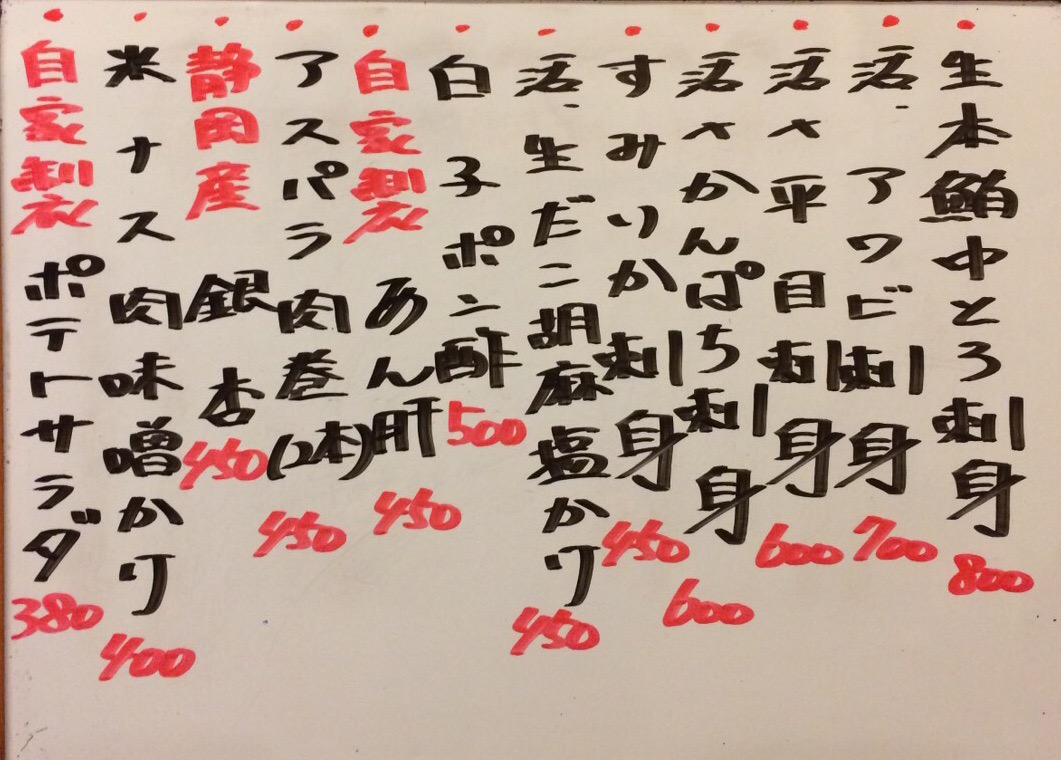 生本鮪中とろ刺身 800
活、アワビ刺身 700
活〆平目刺身 600
活〆かんぱち刺身 600
すみいか刺身 450
活、生だこ胡麻塩かけ 450
白子ポン酢 500
自家製あん肝 450
アスパラ肉巻(2本) 450
静岡産銀杏 450
米ナス肉味噌かけ 400
自家製ポテトサラダ 380